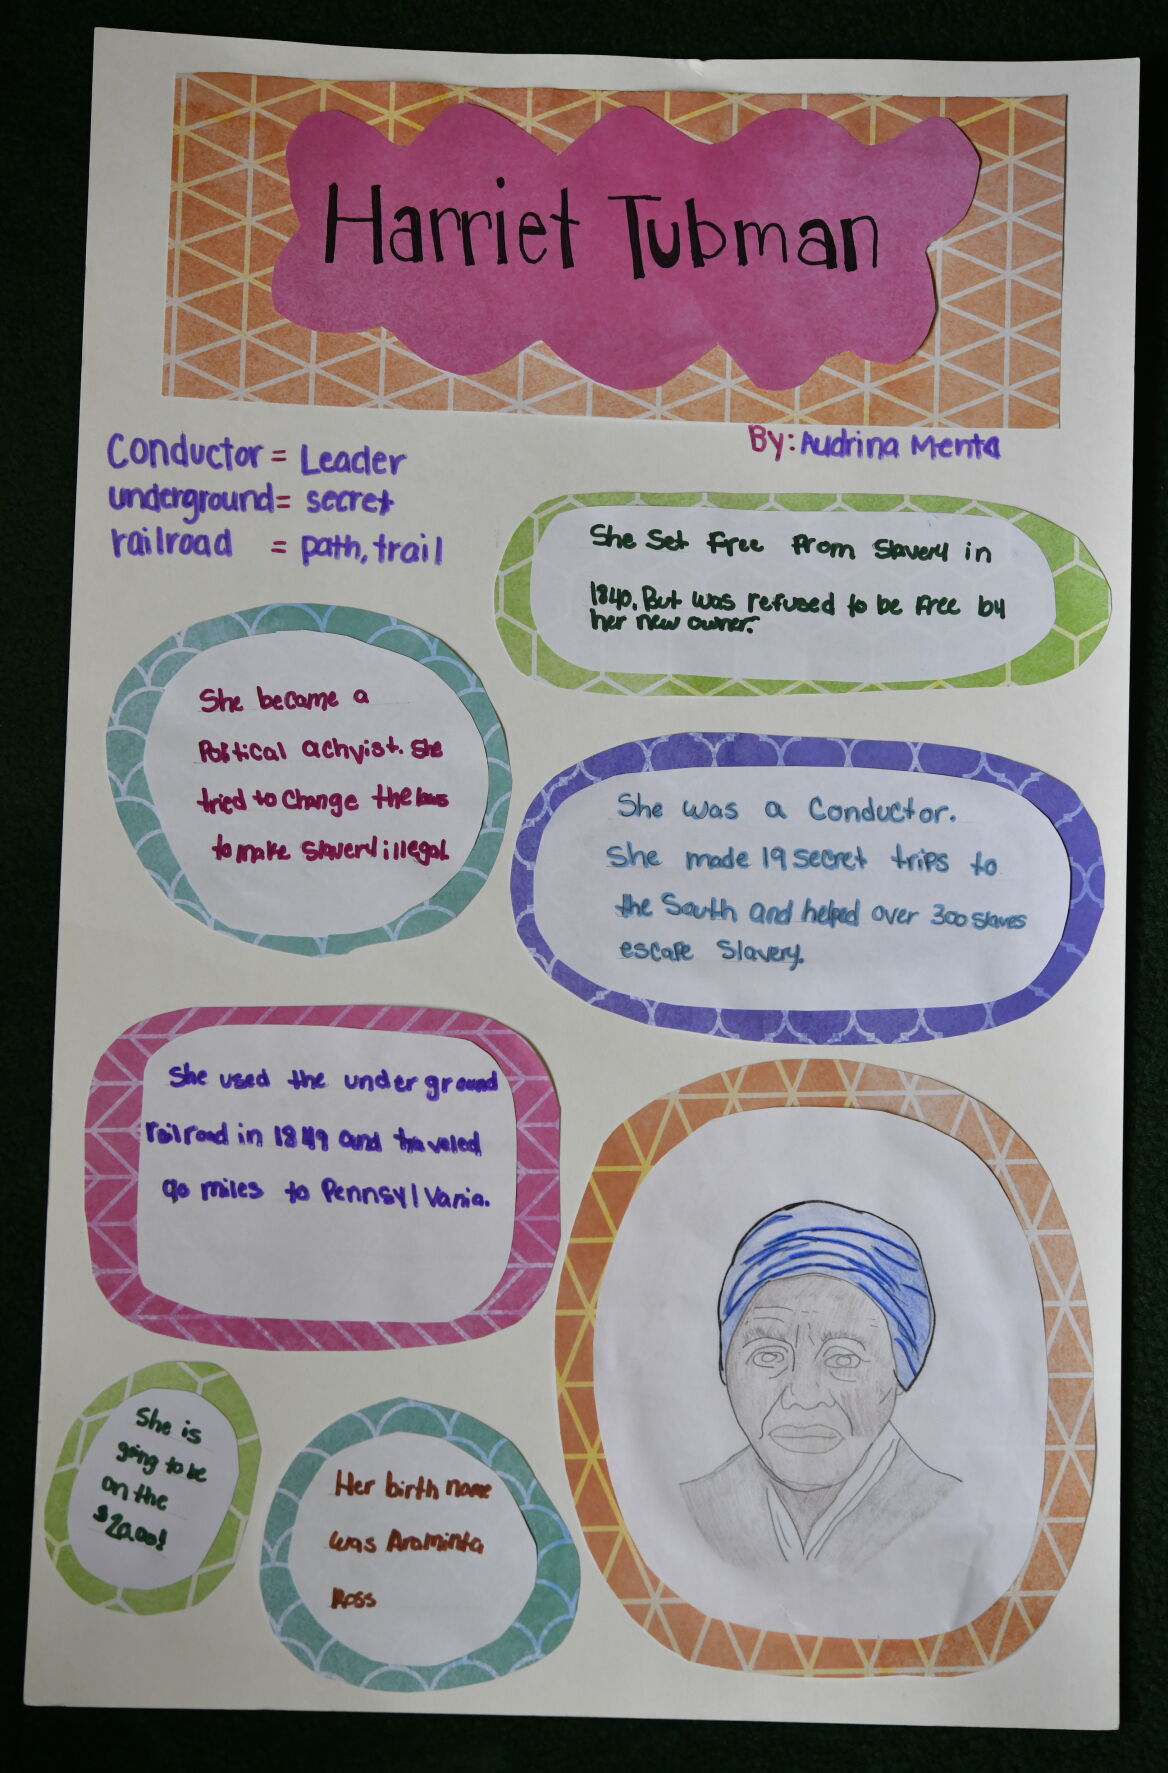 Harriet Tubman
By: Audrina Menta
Conductor = Leader
underground= secret
railroad = path, trail
She set free from Slavery in
1840. But was refused to be free by
her new owner.
She became a
Political activist. She
tried to change the laws
to make Slavery illegal.
She was a Conductor.
She made 19 secret trips to
the South and helped over 300 slaves
escape Slavery.
She used the under ground
railroad in 1849 and traveled
90 miles to Pennsylvania.
She is
going to be
on the
$20.00!
Her birth name
was Araminta
Ross